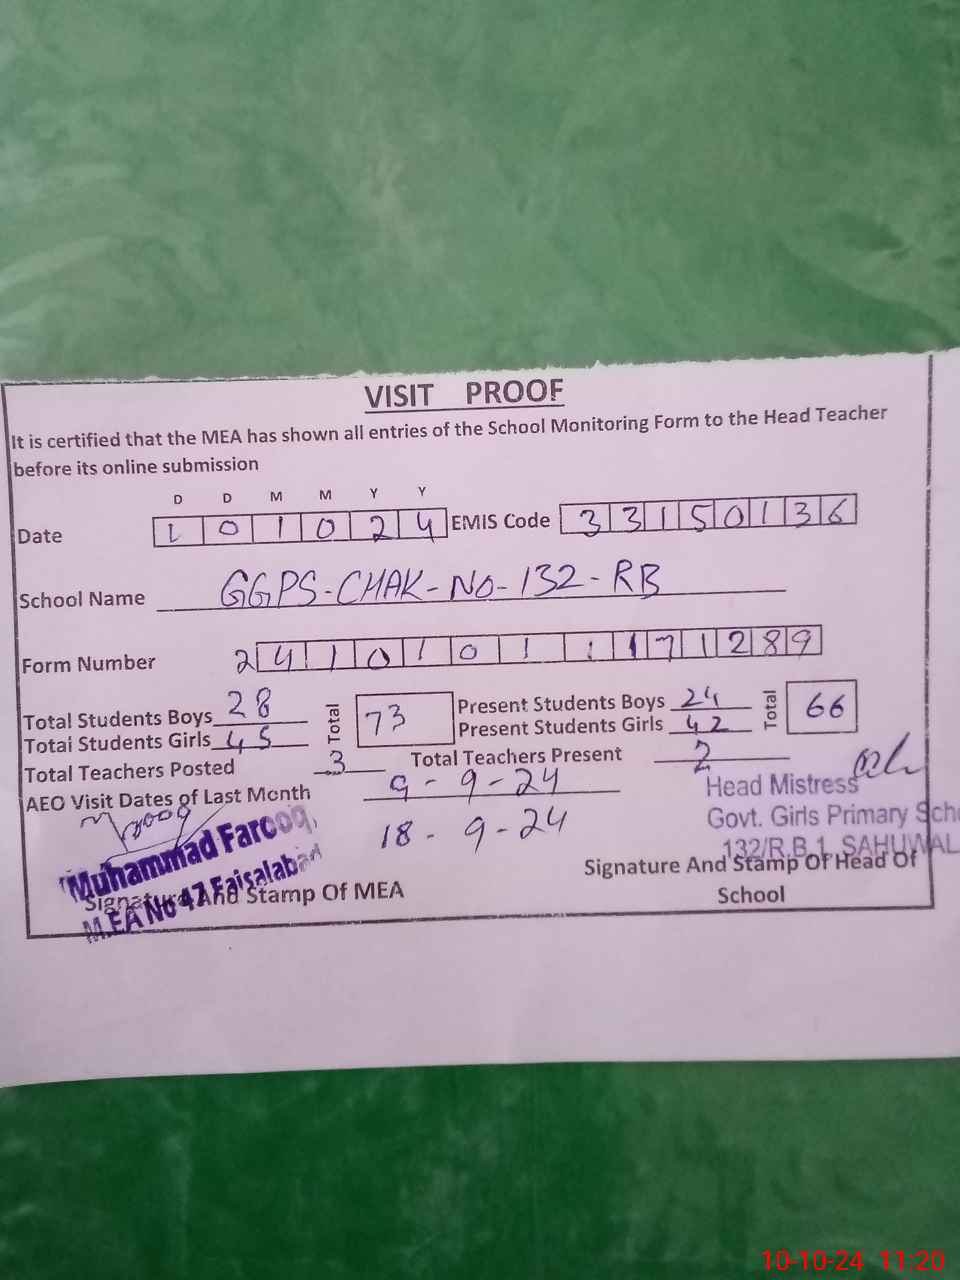 VISIT PROOF
It is certified that the MEA has shown all entries of the School Monitoring Form to the Head Teacher
before its online submission
D D M M Y Y
Date 1 0 1 0 2 4 EMIS Code 3 3 1 5 0 1 3 6
School Name GGPS-CHAK-NO-132-RB
Form Number 2 4 1 0 1 0 1 1 1 7 1 2 8 9
Total Students Boys 28 Total 73 Present Students Boys 24 Total 66
Total Students Girls 45 Present Students Girls 42
Total Teachers Posted 3 Total Teachers Present 2
AEO Visit Dates of Last Month 9-9-24
18-9-24
Muhammad Farooq
M.EA No 47 Faisalabad
Signature And Stamp Of MEA
Head Mistress
Govt. Girls Primary Scho
132/R.B 1, SAHUWAL
Signature And Stamp Of Head Of
School
10-10-24 11:20